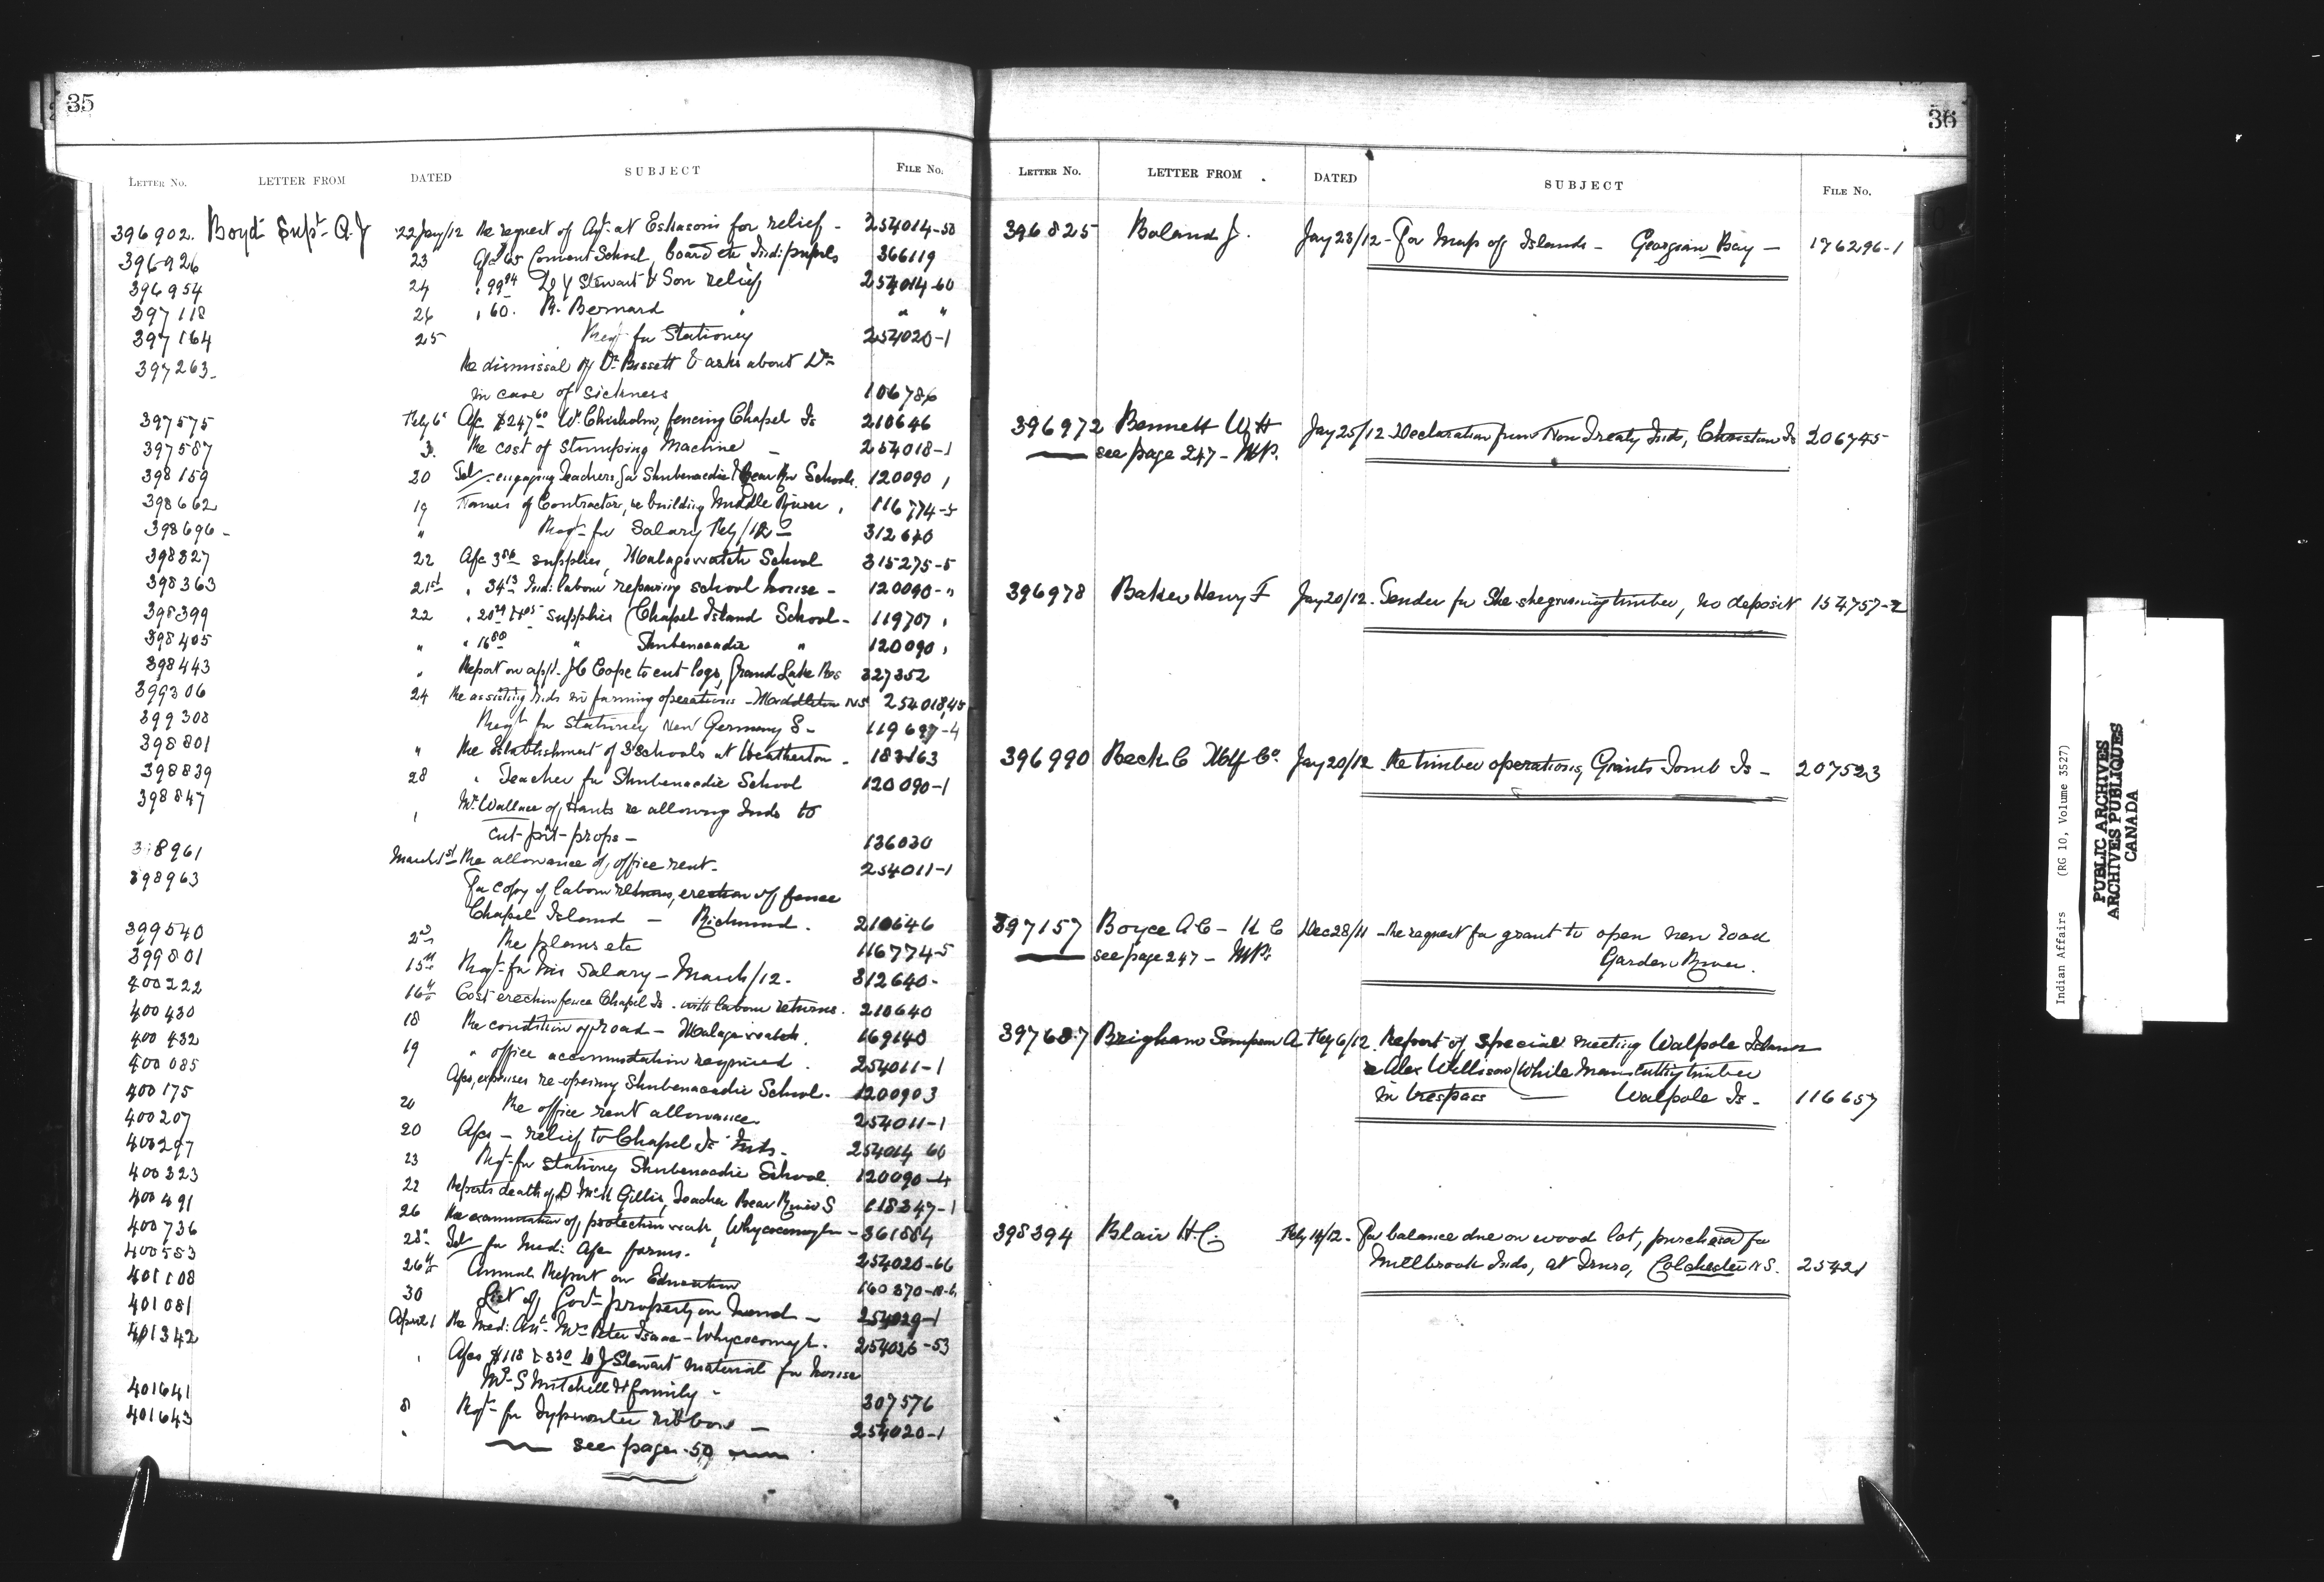 35
LETTER NO. LETTER FROM DATED SUBJECT FILE NO.
396902. Boyd Supt. A. J. 22 Jay/12 Re request of Agt. at Eskasoni for relief - 254014-50
396926 23 Convent School, board etc Ind: pupils 366119
396954 24 " 99 94 Stewart & Son relief 254014-60
397118 26 " 60. R. Bernard " " "
397164 25 Reqt for Stationery 254020-1
397263- Re dismissal of Dr Bissett & asks about Dr
in case of sickness 106786
397575 Feby 6 A/c $247 60 W. Chisholm, fencing Chapel Is 210646
397587 3. Re cost of Stumping Machine - 254018-1
398159 20 Tel - engaging Teachers for Shubenacadie & Bear River Schools. 120090
398662 19 Names of Contractor, re building Middle River 116774-5
398696- " Reqt for Salary Feby/12 - 312640
398327 22 A/c supplies, Malagawatch School 315275-5
398363 21st " 34 13 Ind: labour repairing school house - 120090-"
398399 22 " supplies Chapel Island School - 119707
398405 " " 16 80 " Shubenacadie " 120090
398443 " Report on appl. J C Cope to cut logs, Grand Lake Res 327352
399306 24 Re assisting Inds in farming operations - Middleton NS 254018,45
399308 Reqt for Stationery New Germany S - 119697-4
398801 " Re Establishment of Schools at Heatherton - 183163
398839 28 " Teacher for Shubenacadie School 120090-1
398847 " Mr Wallace of Hants re allowing Inds to
cut pit-props - 136030
398961 March 1st Re allowance of office rent - 254011-1
398963 For copy of labour returns, erection of fence
Chapel Island - Richmond. 210646
399540 2nd Re plans etc 116774-5
399801 15th Reqt for his Salary - March/12. 312640-
400222 16th Cost erection fence Chapel Is. with labour returns. 210640
400430 18 Re condition of road - Malagawatch. 169140
400432 19 " office accommodation required. 254011-1
400085 A/cs, expenses re-opening Shubenacadie School. 1200903
400175 20 Re office rent allowance 254011-1
400207 20 A/cs - relief to Chapel Is Inds. 254014 60
400297 23 Reqt for stationery Shubenacadie School. 120090-4
400323 22 Reports death of D McK Gillis, Teacher Bear River S 118347-1
400491 26 Re examination of protection work, Whycocomagh - 361884
400736 28 Tel for Med: A/c forms. 254020-66
400553 26th Annual Report on Education 160370-
401108 30 List of Govt property on hand - 254029-1
401081 April 1 Re Med: Att. Mrs Peter Isaac - Whycocomagh. 254026-53
401342 " A/cs $118 & 330 Stewart material for house
Mr S Mitchell & family - 307576
401641 8 Reqt for Typewriter ribbons - 254020-1
401643 " see page 50
36
LETTER NO. LETTER FROM DATED SUBJECT FILE NO.
396825 Boland J. Jay 23/12 - For Map of Islands - Georgian Bay - 176296-1
396972 Bennett W H Jay 25/12 Declaration from Non Treaty Inds, Christian Is 206745-
see page 247 - M.P.
396978 Baker Henry F Jay 20/12. Tender for Shesheguaning timber, no deposit 154757-2
396990 Beck C Mfg Co. Jay 20/12 Re timber operations, Giants Tomb Is - 207523
397157 Boyce A C - K C Dec 28/11 - Re request for grant to open new road
see page 247 - M.P. Garden River.
397687 Brigham Sampson A Feby 6/12. Report of special meeting Walpole Island
re Alex Willison (White man) cutting timber
in trespass - Walpole Is - 116657
398394 Blair H. C. Feby 14/12 - For balance due on wood lot, purchased for
Millbrook Inds, at Truro, Colchester N S. 25421
Indian Affairs (RG 10, Volume 3527)
PUBLIC ARCHIVES
ARCHIVES PUBLIQUES
CANADA